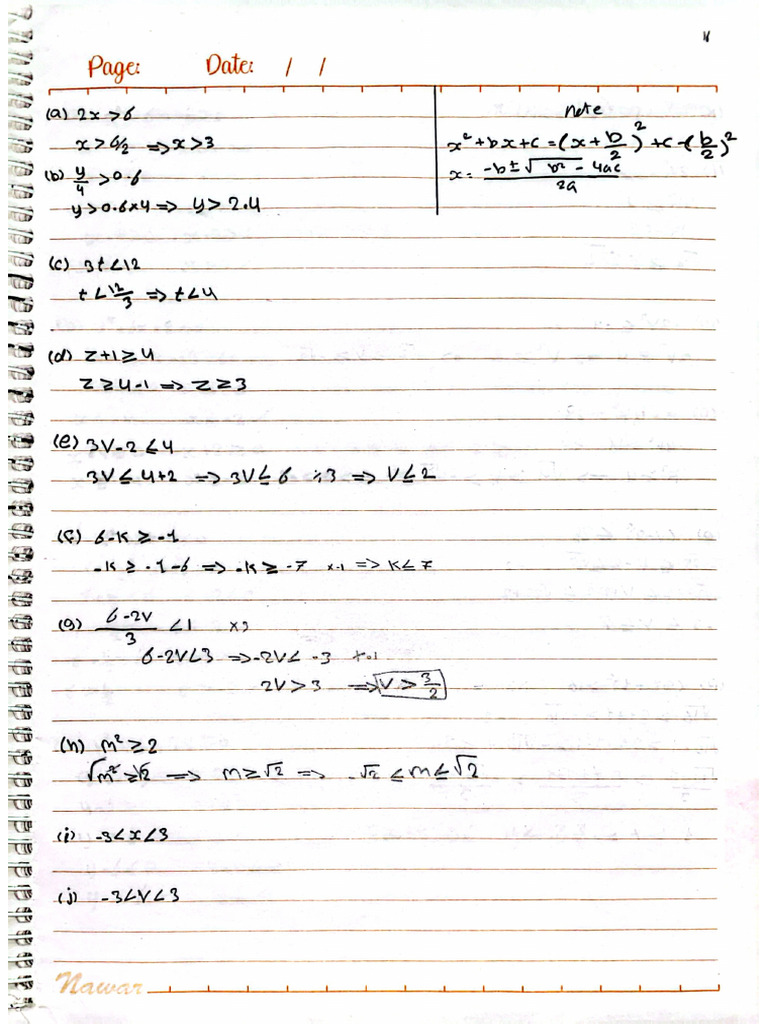 Page: Date: / /
(a) 2x > 6
x > 6/2 => x > 3
(b) y/4 > 0.6
y > 0.6 x 4 => y > 2.4
note
x² + bx + c = (x + b/2)² + c - (b/2)²
x = (-b ± √(b² - 4ac))/2a
(c) 3t < 12
t < 12/3 => t < 4
(d) z + 1 ≥ 4
z ≥ 4 - 1 => z ≥ 3
(e) 3V - 2 ≤ 4
3V ≤ 4 + 2 => 3V ≤ 6 ÷3 => V ≤ 2
(f) 6 - k ≥ -1
-k ≥ -1 - 6 => -k ≥ -7 x-1 => k ≤ 7
(g) (6 - 2V)/3 < 1 x3
6 - 2V < 3 => -2V < -3 x-1
2V > 3 => V > 3/2
(h) m² ≥ 2
√m² ≥ √2 => m ≥ √2 => -√2 ≤ m ≤ √2
(i) -3 < x < 3
(j) -3 < V < 3
Nawar